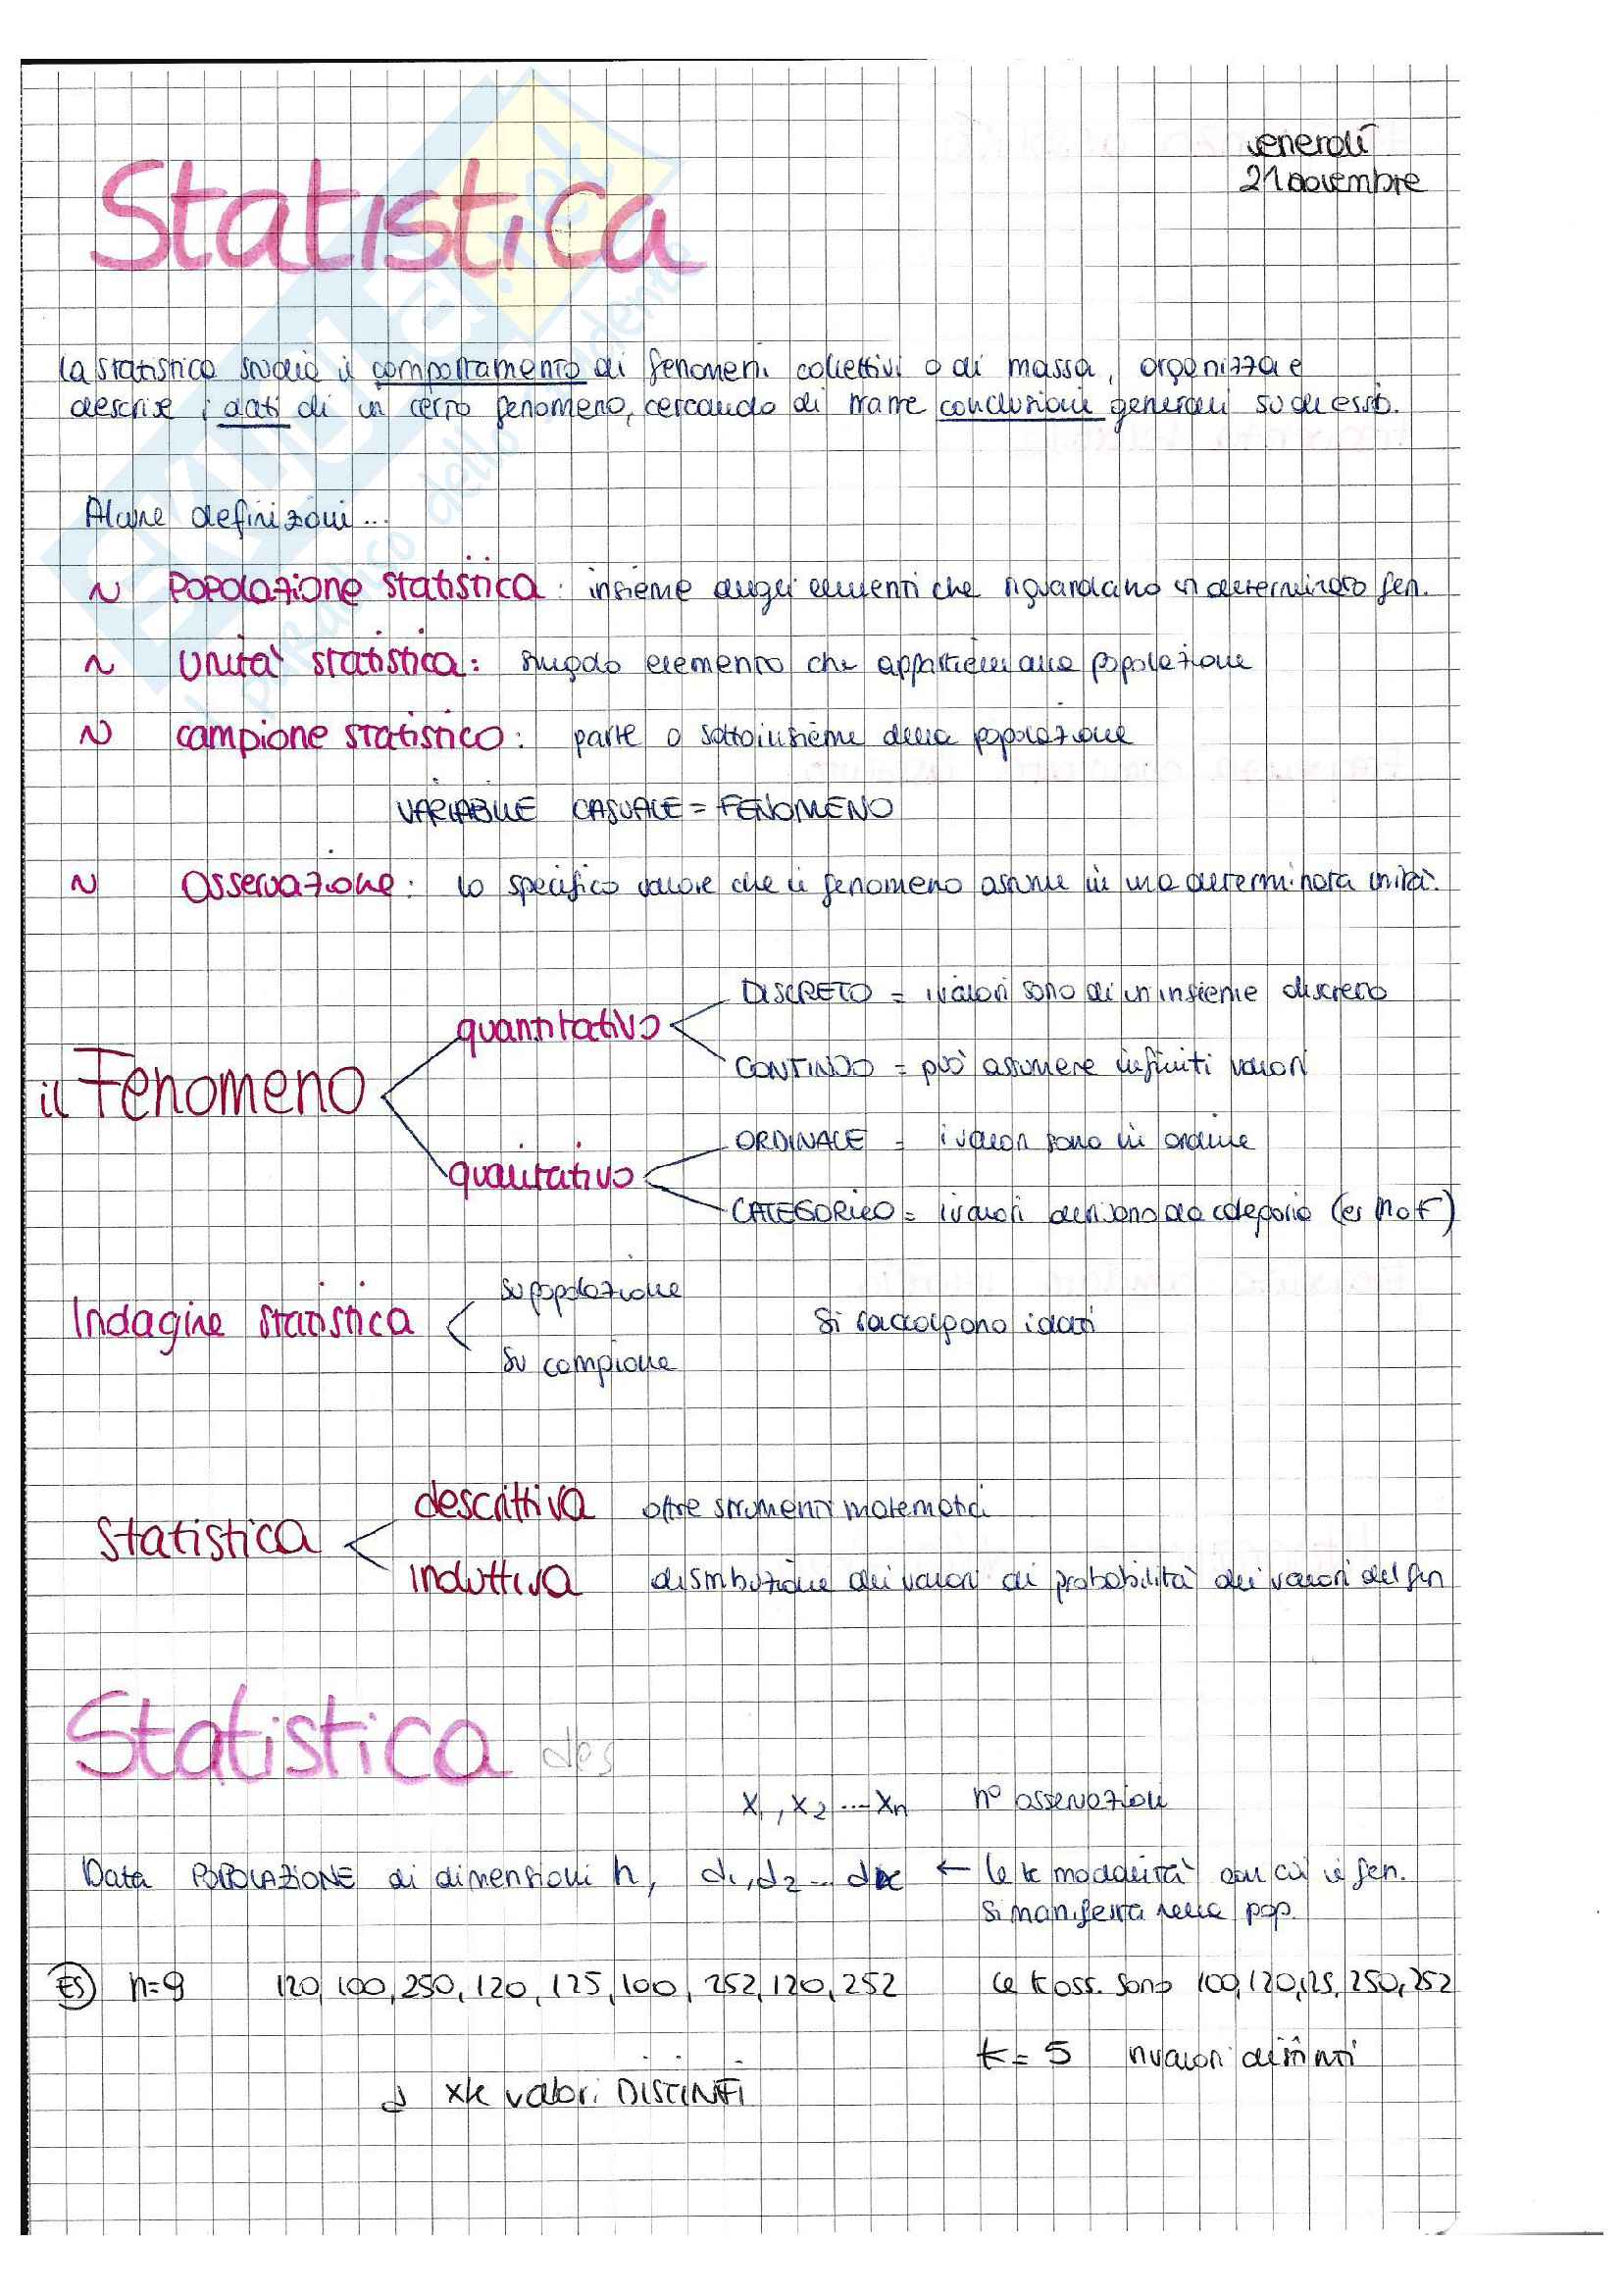 venerdì
21 novembre
Statistica
La statistica studia il comportamento di fenomeni collettivi o di massa, organizza e
descrive i dati di un certo fenomeno, cercando di trarre conclusioni generali su di esso.
Alcune definizioni...
~ Popolazione statistica: insieme degli elementi che riguardano un determinato fen.
~ Unità statistica: singolo elemento che appartiene alla popolazione
~ campione statistico: parte o sottoinsieme della popolazione
VARIABILE CASUALE = FENOMENO
~ Osservazione: lo specifico valore che il fenomeno assume in una determinata unità.
il Fenomeno
quantitativo
DISCRETO = i valori sono di un insieme discreto
CONTINUO = può assumere infiniti valori
qualitativo
ORDINALE = i valori sono in ordine
CATEGORICO = i valori derivano da categorie (es M o F)
Indagine statistica
su popolazione
su campione
si raccolgono i dati
Statistica
descrittiva offre strumenti matematici
induttiva distribuzione dei valori di probabilità dei valori del fen
Statistica des
x1, x2 ... xn n° osservazioni
Data POPOLAZIONE di dimensioni n, d1, d2 ... dk ← le k modalità con cui il fen.
si manifesta nella pop.
ES n=9 120, 100, 250, 120, 125, 100, 252, 120, 252 le k oss. sono 100, 120, 125, 250, 252
k = 5 n valori distinti
xk valori DISTINTI
SKUOLA.net
il paradiso dello studente